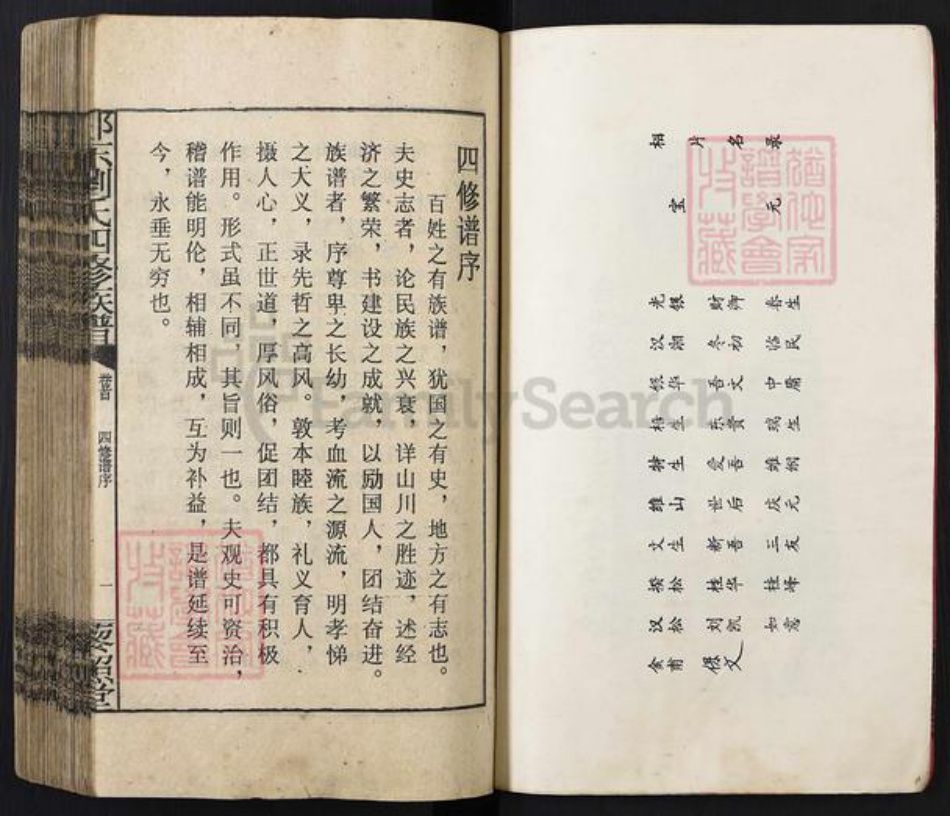 相片名录
宝元
春生
财卿
光银
临民
冬初
汉湘
中庸
吾文
银华
瑞生
东贵
相生
雄纲
爱吾
特生
庆元
世后
雄山
三友
新吾
文生
桂峰
桂华
揆松
如意
刘凯
汉松
保文
食甫
四修谱序
百姓之有族谱，犹国之有史，地方之有志也。
夫史志者，论民族之兴衰，详山川之胜迹，述经
济之繁荣，书建设之成就，以励国人，团结奋进。
族谱者，序尊卑之长幼，考血流之源流，明孝悌
之大义，录先哲之高风。敦本睦族，礼义育人，
摄人心，正世道，厚风俗，促团结，都具有积极
作用。形式虽不同，其旨则一也。夫观史可资治，
稽谱能明伦，相辅相成，互为补益，是谱延续至
今，永垂无穷也。
邵东刘氏四修族谱
卷首
四修谱序
一
藜照堂
FamilySearch